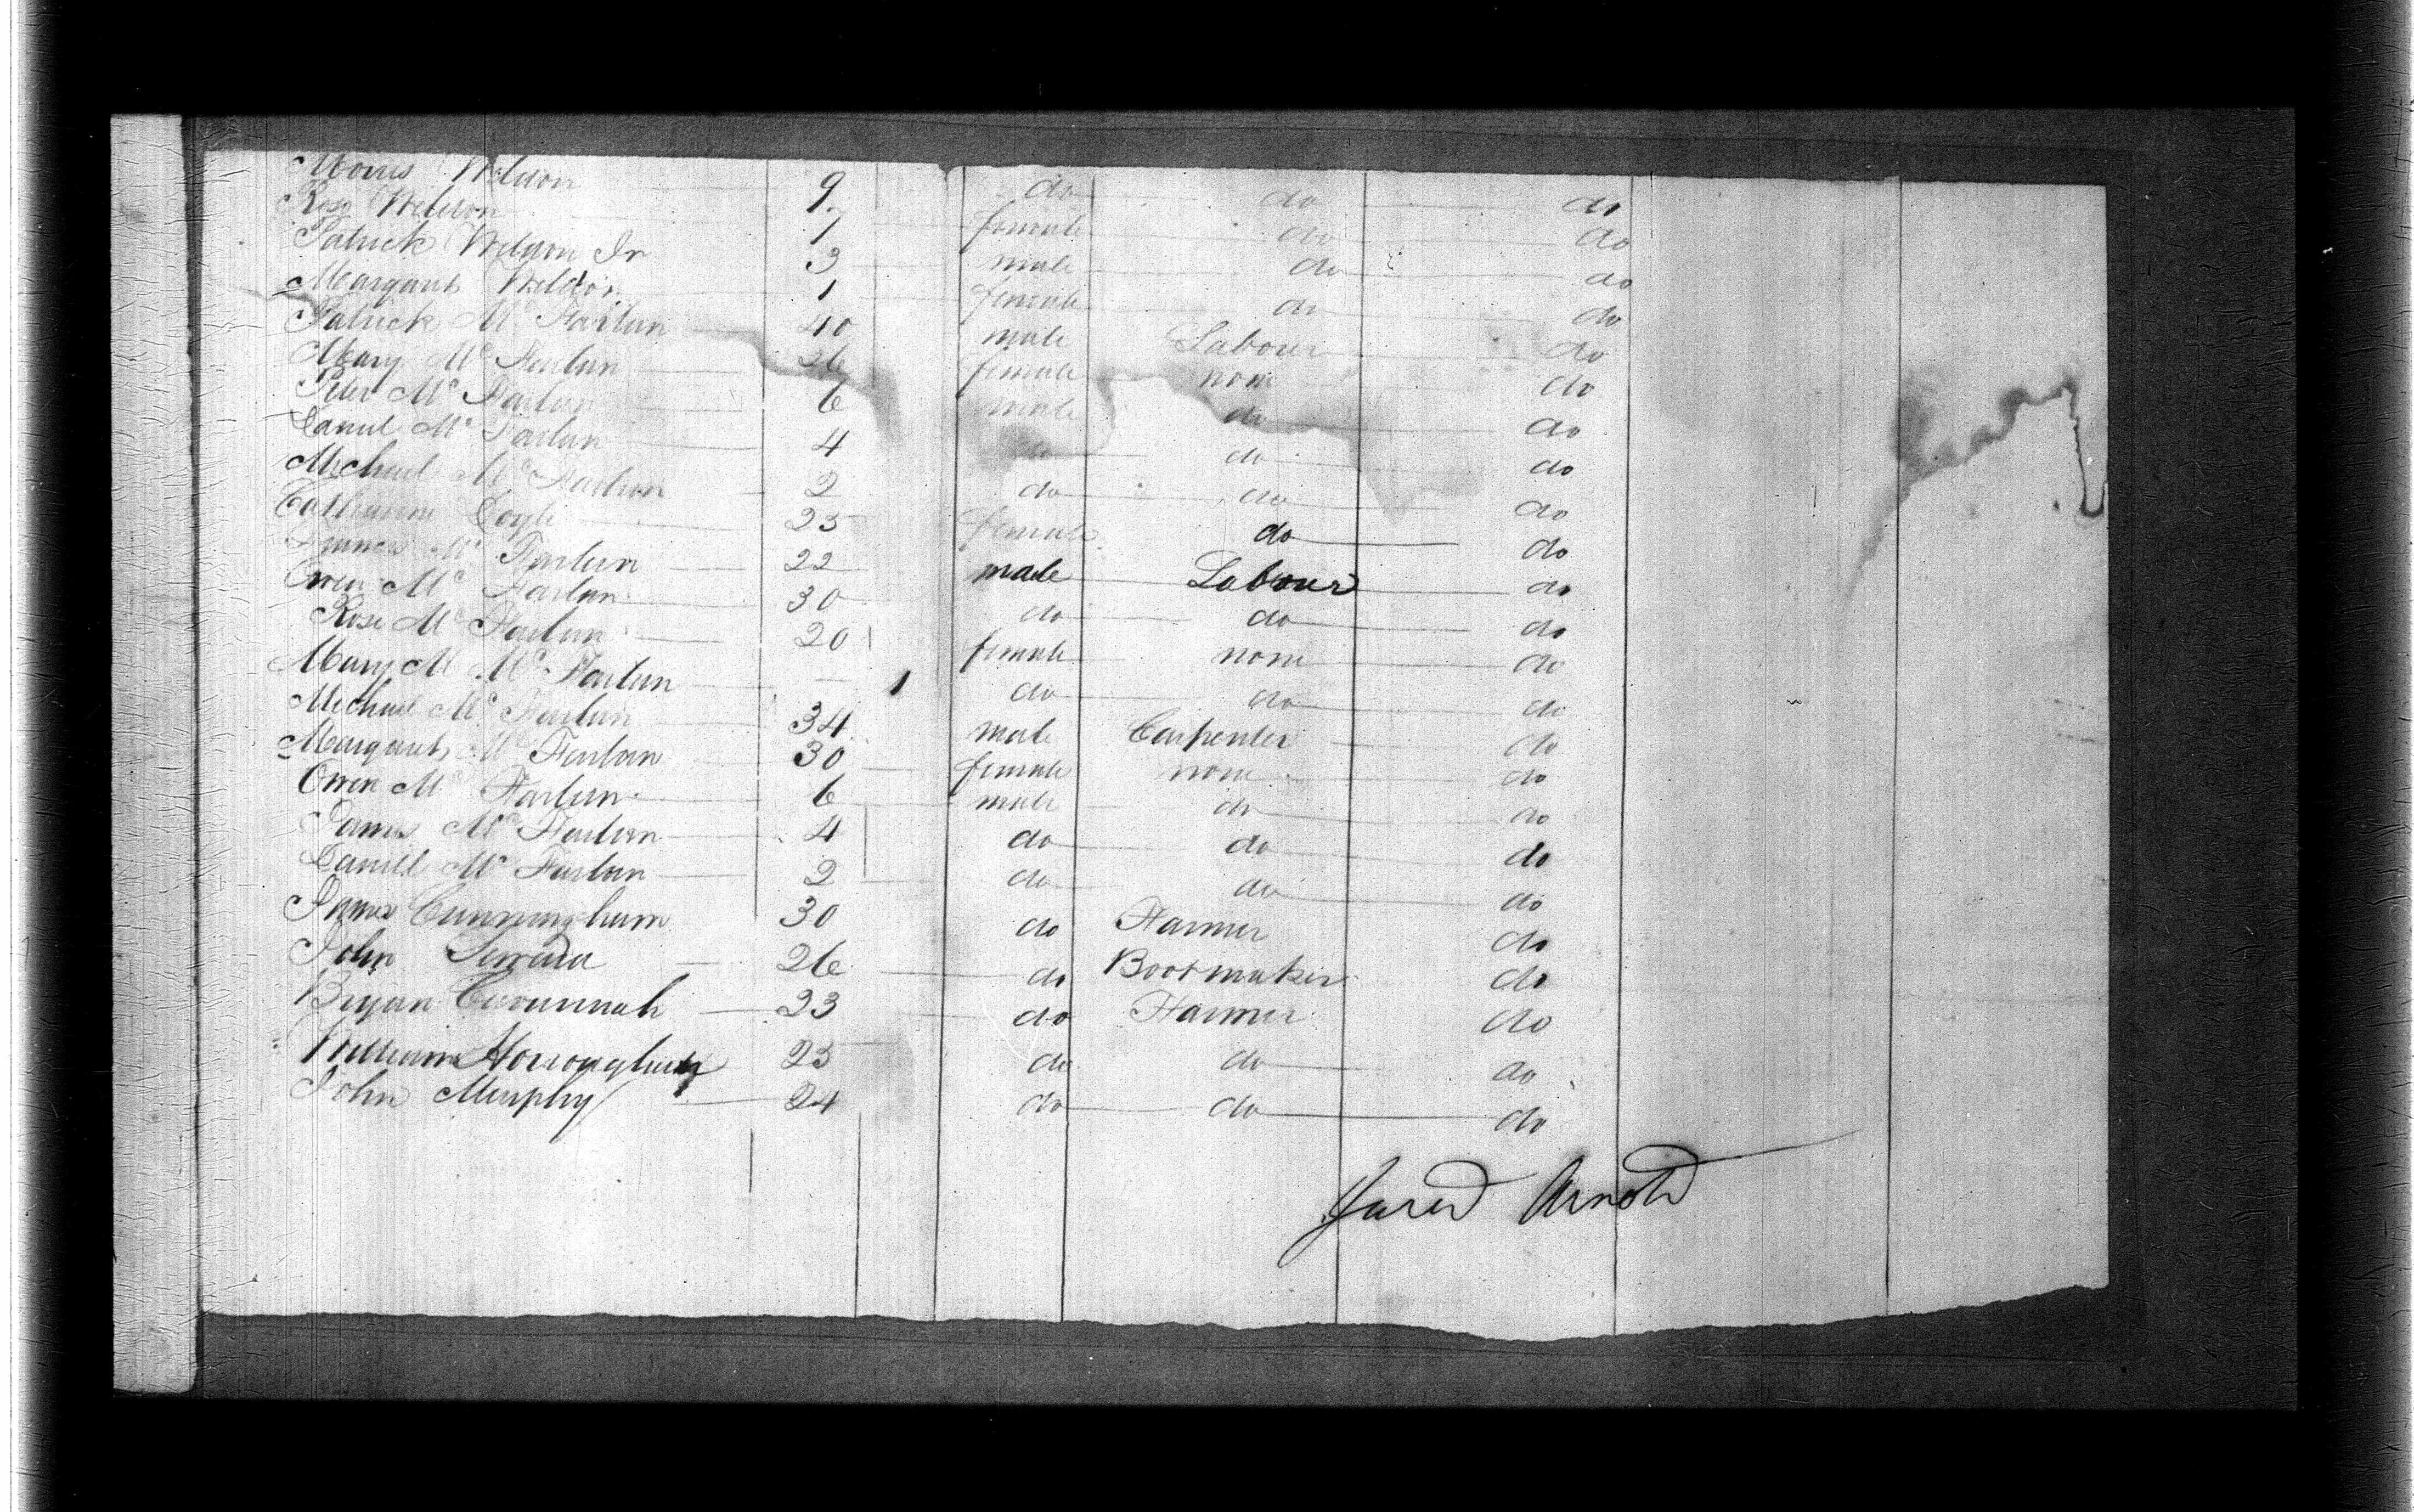 Morris Weldon 9 do do do
Rose Weldon 7 female do do
Patrick Weldon Jr 3 male do do
Margaret Weldon 1 female do do
Patrick Mc Farlan 40 male Labour do
Mary Mc Farlan 26 female none do
Peter Mc Farlan 6 male do do
Daniel Mc Farlan 4 do do do
Michael Mc Farlan 2 do do do
Catharine Doyle 25 female do do
Mc Farlan 22 male Labour do
Owen Mc Farlan 30 do do do
Rose Mc Farlan 20 female none do
Mary M Mc Farlan 1 do do do
Michael Mc Farlan 34 male Carpenter do
Margaret Mc Farlan 30 female none do
Owen Mc Farlan 6 male do do
James Mc Farlan 4 do do do
Daniel Mc Farlan 2 do do do
James Cunningham 30 do Farmer do
John 26 do Bootmaker do
Bryan Cavannah 23 do Farmer do
William 25 do do do
John Murphy 24 do do do
Jared Arnold